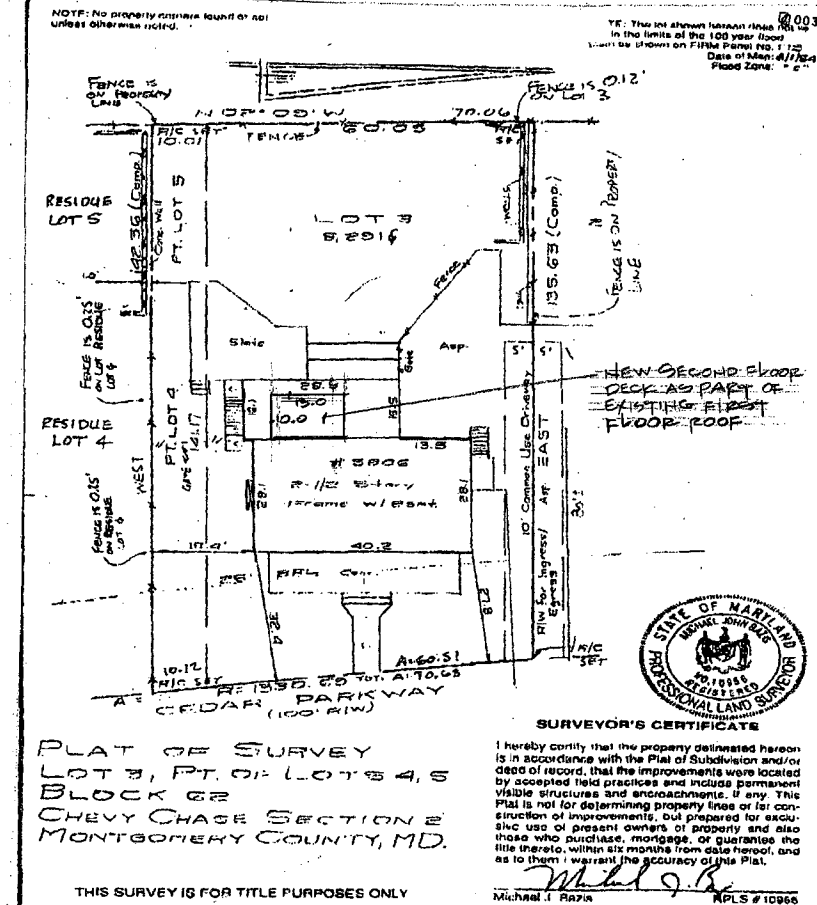 NOTE: No property corners found or set
unless otherwise noted.
003
The lot shown hereon does not lie
in the limits of the 100 year flood
plain as shown on FIRM Panel No.
Date of Map:
Flood Zone: "C"
FENCE IS
ON PROPERTY
LINE
FENCE IS 0.12'
ON LOT 3
70.06
R/C SET
10.01
FENCE
60.05
R/C
SET
RESIDUE
LOT 5
142.36 (Comp.)
Conc. Wall
PT. LOT 5
LOT 3
8,291
Fence
135.63 (Comp.)
FENCE IS ON PROPERTY
LINE
FENCE IS 0.25'
ON LOT RESIDUE
LOT 4
Slate
Asp.
Gate
5' 5'
NEW SECOND FLOOR
DECK AS PART OF
EXISTING FIRST
FLOOR ROOF
15.0
10.0
RESIDUE
LOT 4
PT. LOT 4
14.17
13.5
# 5806
2-1/2 Story
Frame w/Bsmt.
28.1
28.1
WEST
EAST
10' Common Use Driveway
R/W for Ingress/
Egress
Asp.
FENCE IS 0.25'
ON RESIDUE
LOT 4
40.2
25'
BRL
32.4
27.8
10.12
R/C SET
A: 60.51
TOT. A: 70.63
R/C
SET
CEDAR PARKWAY
(100' R/W)
STATE OF MARYLAND
MICHAEL JOHN BAZIS
NO. 10956
REGISTERED
PROFESSIONAL LAND SURVEYOR
PLAT OF SURVEY
LOT 3, PT. OF LOTS 4, 5
BLOCK 62
CHEVY CHASE SECTION 2
MONTGOMERY COUNTY, MD.
THIS SURVEY IS FOR TITLE PURPOSES ONLY
SURVEYOR'S CERTIFICATE
I hereby certify that the property delineated hereon
is in accordance with the Plat of Subdivision and/or
deed of record, that the improvements were located
by accepted field practices and include permanent
visible structures and encroachments, if any. This
Plat is not for determining property lines or for con-
struction of improvements, but prepared for exclu-
sive use of present owners of property and also
those who purchase, mortgage, or guarantee the
title thereto, within six months from date hereof, and
as to them I warrant the accuracy of this Plat.
Michael J. Bazis RPLS # 10956